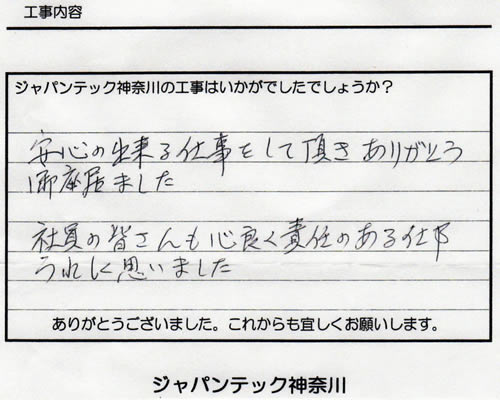 工事内容
ジャパンテック神奈川の工事はいかがでしたでしょうか？
安心の出来る仕事をして頂き ありがとう
御座居ました
社員の皆さんも心良く責任のある仕事
うれしく思いました
ありがとうございました。これからも宜しくお願いします。
ジャパンテック神奈川